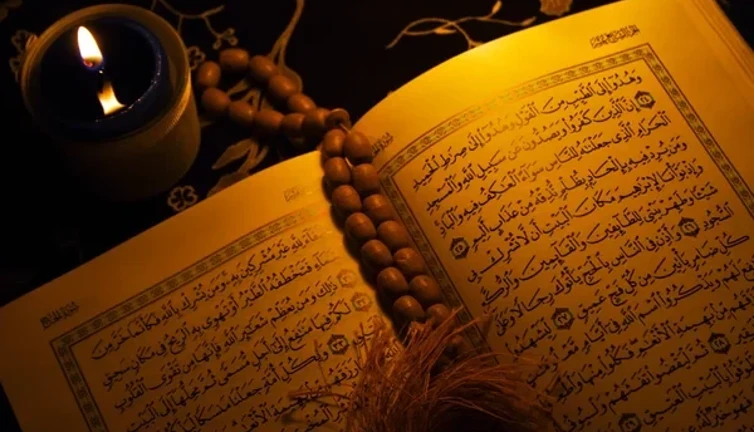 وَهُدُوٓا۟ إِلَى ٱلطَّيِّبِ مِنَ ٱلْقَوْلِ وَهُدُوٓا۟ إِلَىٰ صِرَٰطِ ٱلْحَمِيدِ
٢٤ إِنَّ ٱلَّذِينَ كَفَرُوا۟ وَيَصُدُّونَ عَن سَبِيلِ ٱللَّهِ وَٱلْمَسْجِدِ
ٱلْحَرَامِ ٱلَّذِى جَعَلْنَٰهُ لِلنَّاسِ سَوَآءً ٱلْعَٰكِفُ فِيهِ وَٱلْبَادِ
وَمَن يُرِدْ فِيهِ بِإِلْحَادٍۭ بِظُلْمٍ نُّذِقْهُ مِنْ عَذَابٍ أَلِيمٍ ٢٥
وَإِذْ بَوَّأْنَا لِإِبْرَٰهِيمَ مَكَانَ ٱلْبَيْتِ أَن لَّا تُشْرِكْ بِى
شَيْـًٔا وَطَهِّرْ بَيْتِىَ لِلطَّآئِفِينَ وَٱلْقَآئِمِينَ وَٱلرُّكَّعِ
ٱلسُّجُودِ ٢٦ وَأَذِّن فِى ٱلنَّاسِ بِٱلْحَجِّ يَأْتُوكَ رِجَالًا وَعَلَىٰ
كُلِّ ضَامِرٍ يَأْتِينَ مِن كُلِّ فَجٍّ عَمِيقٍ ٢٧ لِّيَشْهَدُوا۟
لَهُمْ وَيَذْكُرُوا۟ ٱسْمَ ٱللَّهِ فِىٓ أَيَّامٍ
مِّنۢ بَهِيمَةِ ٱلْأَنْعَٰمِ فَكُلُوا۟ مِنْهَا
٢٨ ثُمَّ لْيَقْضُوا۟ تَفَثَهُمْ
بِٱلْبَيْتِ ٱلْعَتِيقِ ٢٩
فَهُوَ خَيْرٌ
لِلَّهِ غَيْرَ مُشْرِكِينَ بِهِۦ وَمَن يُشْرِكْ بِٱللَّهِ فَكَأَنَّمَا خَرَّ مِنَ
فَتَخْطَفُهُ ٱلطَّيْرُ أَوْ تَهْوِى بِهِ ٱلرِّيحُ فِى مَكَانٍ سَحِيقٍ
٣١ ذَٰلِكَ وَمَن يُعَظِّمْ شَعَٰٓئِرَ ٱللَّهِ فَإِنَّهَا مِن تَقْوَى ٱلْقُلُوبِ
لَكُمْ فِيهَا مَنَٰفِعُ إِلَىٰٓ أَجَلٍ مُّسَمًّى ثُمَّ مَحِلُّهَآ إِلَى ٱلْبَيْتِ
وَلِكُلِّ أُمَّةٍ جَعَلْنَا مَنسَكًا
بَهِيمَةِ ٱلْأَنْعَٰمِ